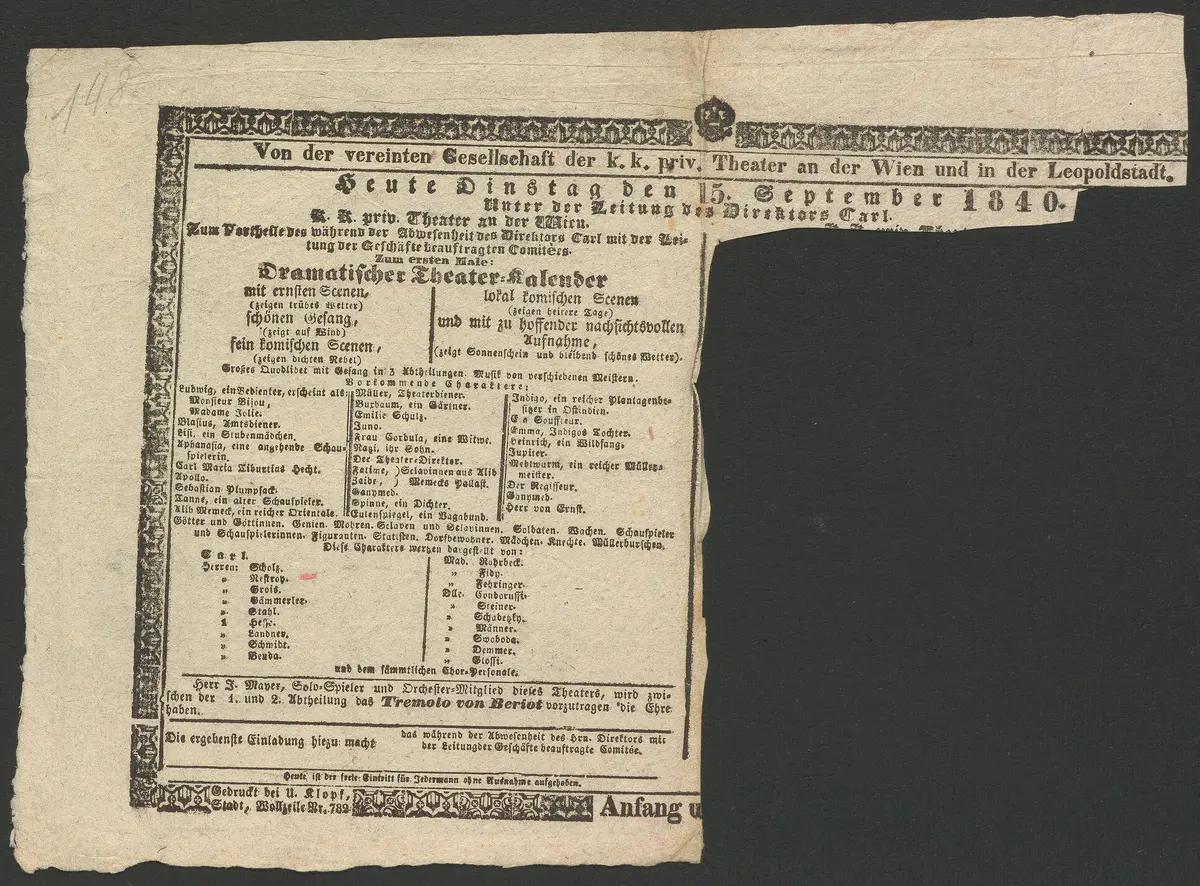 148
Von der vereinten Gesellschaft der k. k. priv. Theater an der Wien und in der Leopoldstadt.
Heute Dinstag den 15. September 1840.
Unter der Leitung des Direktors Carl.
K. K. priv. Theater an der Wien.
Zum Vortheile des während der Abwesenheit des Direktors Carl mit der Lei-
tung der Geschäfte beauftragten Comitées.
Zum ersten Male:
Dramatischer Theater-Kalender
mit ernsten Scenen,
(zeigen trübes Wetter)
schönen Gesang,
(zeigt auf Wind)
fein komischen Scenen,
(zeigen dichten Nebel)
lokal komischen Scenen
(zeigen heitere Tage)
und mit zu hoffender nachsichtsvollen
Aufnahme,
(zeigt Sonnenschein und bleibend schönes Wetter).
Großes Quodlibet mit Gesang in 3 Abtheilungen. Musik von verschiedenen Meistern.
Vorkommende Charaktere:
Ludwig, ein Bedienter, erscheint als:
Monsieur Bijou,
Madame Jolie.
Blasius, Amtsdiener.
Lisi, ein Stubenmädchen.
Aphanasia, eine angehende Schau-
spielerin.
Carl Maria Tiburtius Hecht.
Apollo.
Sebastian Plumpsack.
Tanne, ein alter Schauspieler.
Alib Memeck, ein reicher Orientale.
Müller, Theaterdiener.
Buxbaum, ein Gärtner.
Emilie Schulz.
Juno.
Frau Cordula, eine Witwe.
Nazi, ihr Sohn.
Der Theater-Direktor.
Fatime, ) Sclavinnen aus Alib
Zaide, ) Memecks Pallast.
Ganymed.
Spinne, ein Dichter.
Eulenspiegel, ein Vagabund.
Indigo, ein reicher Plantagenbe-
sitzer in Ostindien.
Ein Souffleur.
Emma, Indigos Tochter.
Heinrich, ein Wildfang.
Jupiter.
Mehlwurm, ein reicher Müller-
meister.
Der Regisseur.
Ganymed.
Herr von Ernst.
Götter und Göttinnen. Genien. Mohren. Sclaven und Sclavinnen. Soldaten. Wachen. Schauspieler
und Schauspielerinnen. Figuranten. Statisten. Dorfbewohner. Mädchen. Knechte. Müllerburschen.
Diese Charaktere werden dargestellt von:
Carl.
Herren: Scholz.
„ Nestroy.
„ Grois.
„ Gämmerler.
„ Stahl.
„ Heße.
„ Landner.
„ Schmidt.
„ Benda.
Mad. Rohrbeck.
„ Fidy.
„ Fehringer.
Dlle. Condorussi.
„ Steiner.
„ Schadetzky.
„ Männer.
„ Swoboda.
„ Demmer.
„ Glossi.
und dem sämmtlichen Chor-Personale.
Herr J. Mayer, Solo-Spieler und Orchester-Mitglied dieses Theaters, wird zwi-
schen der 1. und 2. Abtheilung das Tremolo von Beriot vorzutragen die Ehre
haben.
Die ergebenste Einladung hiezu macht
das während der Abwesenheit des Hrn. Direktors mit
der Leitung der Geschäfte beauftragte Comitée.
Heute ist der freie Eintritt für Jedermann ohne Ausnahme aufgehoben.
Gedruckt bei U. Klopf,
Stadt, Wollzeile Nr. 782
Anfang u